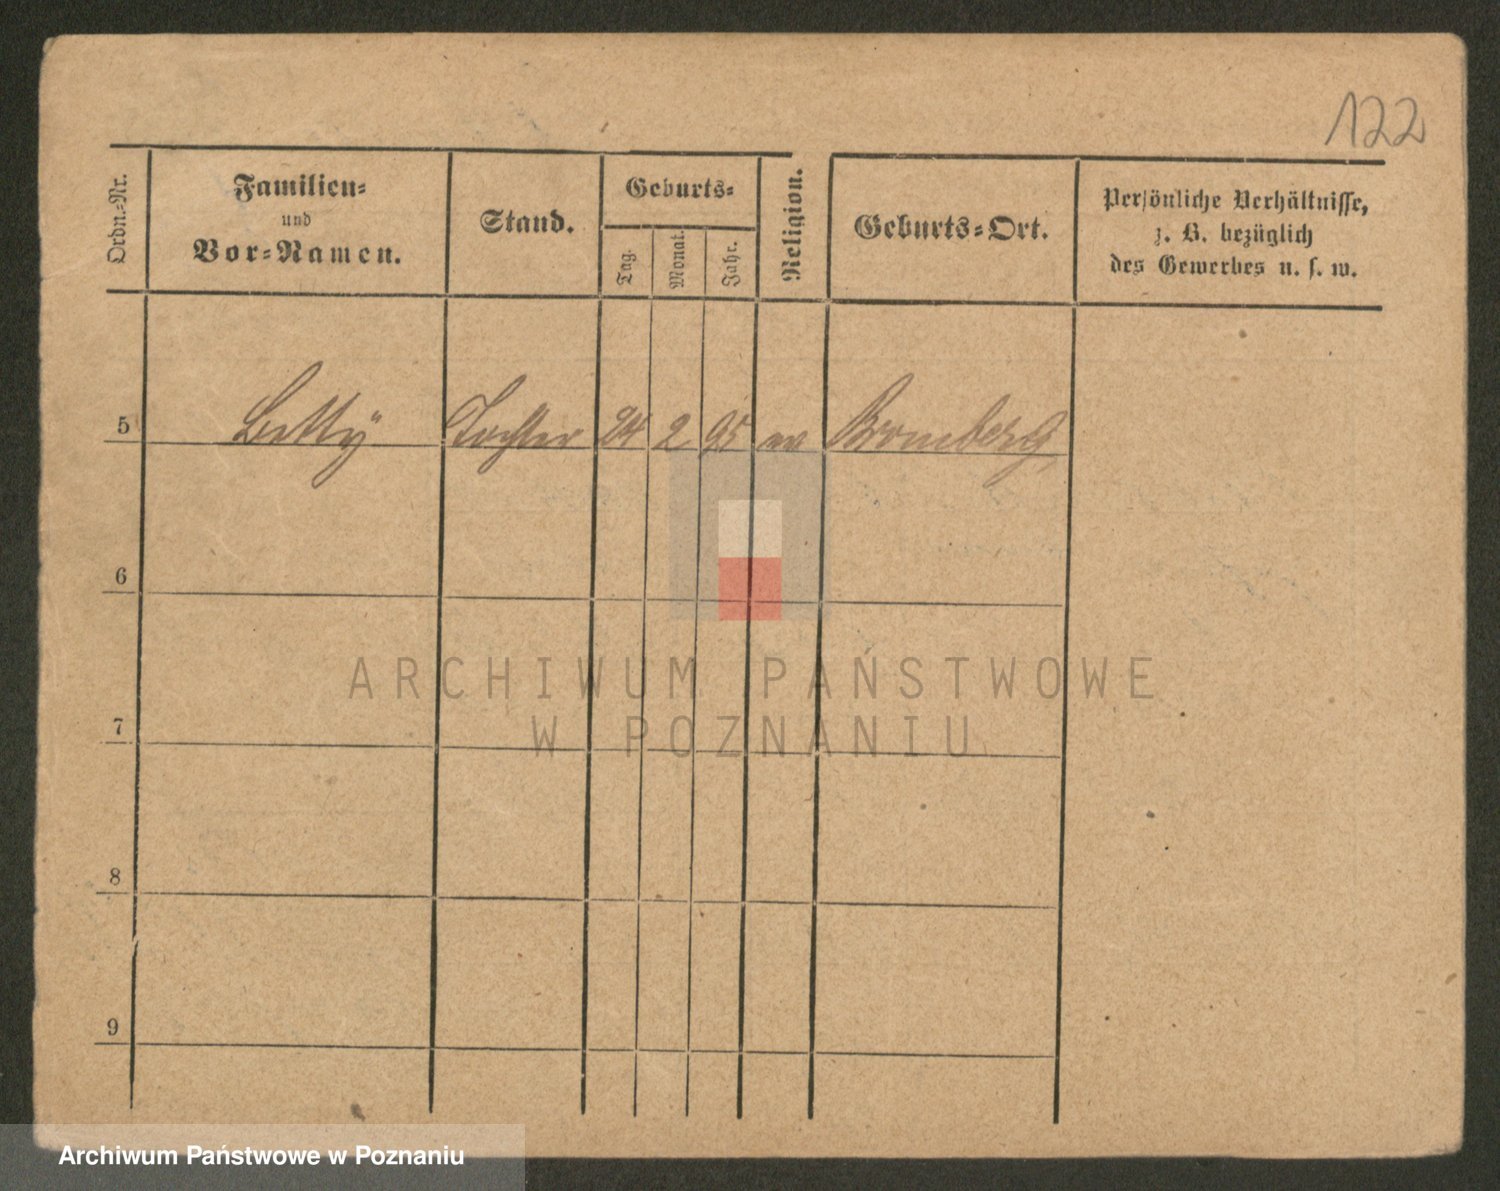 122
Ordn.-Nr.
Familien-
und
Vor-Namen.
Stand.
Geburts-
Tag.
Monat.
Jahr.
Religion.
Geburts-Ort.
Persönliche Verhältnisse,
z. B. bezüglich
des Gewerbes u. s. w.
5 Betty Tochter 24 2 95 Bromberg
6
ARCHIWUM PAŃSTWOWE
W POZNANIU
7
8
9
Archiwum Państwowe w Poznaniu